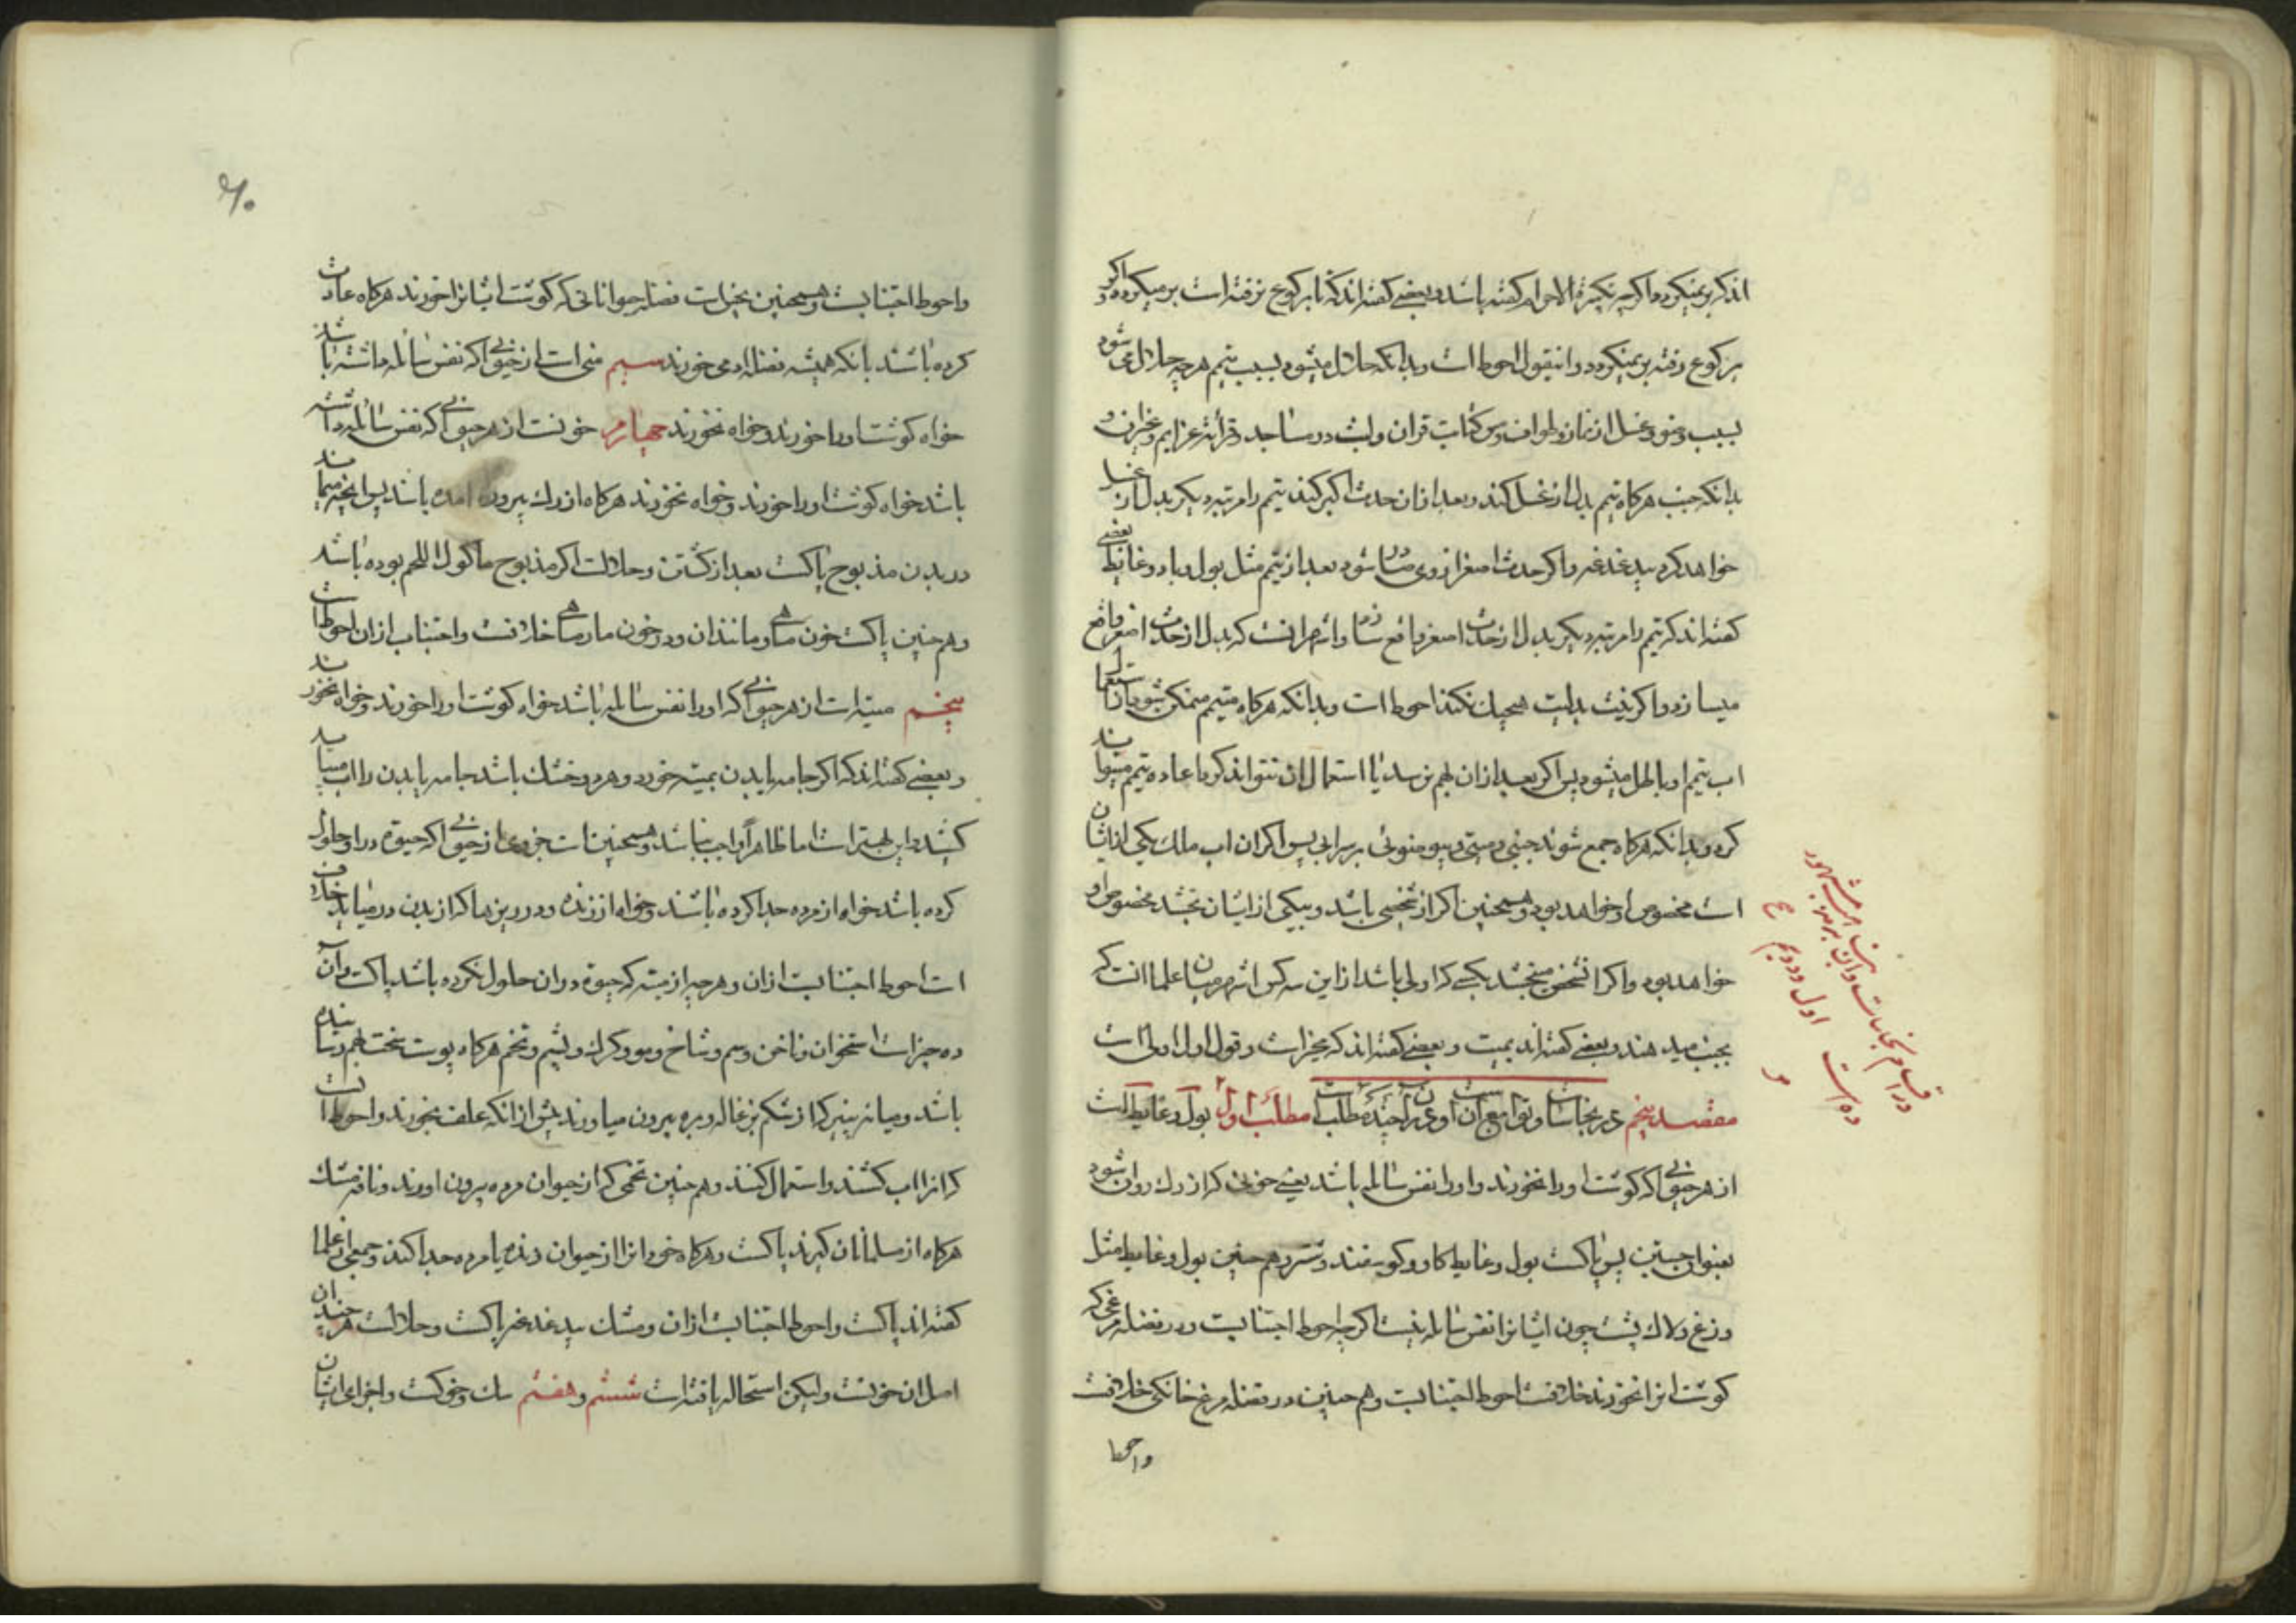 اندکه برنمیکردد واکرچه تکبیرة الاحرام کفته باشد و بعضی کفته اندکه تا برکوع نرفته است برمیکردد و اکر
برکوع رفته برنمیکردد و اینقول احوط است وبدانکه حلال میشود بسبب تیمم هرچه حلال می شود
بسبب وضو وغسل از نماز وطواف ومس کتابت قران ولبث در مساجد وقرائة عزایم وغیران و
بدانکه جنب هرکاه تیمم بدل از غسل کند وبعد از ان حدث اکبر کند تیمم را مرتبه دیکر بدل از غسل
خواهد کرد بیدغدغه واکر حدث اصغر از وی صادر شود بعد از تیمم مثل بول وباد وغایط بعضی
کفته اندکه تیمم را مرتبه دیکر بدل از حدث اصغر واقع سازد و اشهر انست که بدل از حدث اصغر واقع
میسازد واکر نیت بدلیت هیچیک نکند احوط است وبدانکه هرکاه متیمم ممکن شود از استعمال
اب تیمم او باطل میشود پس اکر بعد از ان بهم نرسد یا استعمال ان نتواند کرد اعاده تیمم میتواند
کرد وبدانکه هرکاه جمع شوند جنبی ومیتی وبیوضوئی بر سر ابی پس اکر ان اب ملک یکی از ایشان
است مخصوص او خواهد بود وهمچنین اکر از شخصی باشد وبیکی از ایشان بخشد مخصوص او
خواهد بود واکر انشخص میبخشد بکسی که اولی باشد از این سه کس اشهر میان علما انست که
بجنب میدهند وبعضی کفته اند بمیت وبعضی کفته اندکه مخیر است وقول اول اولی است
مقصد پنجم در نجاسات وتوابع ان و در ان چند مطلب است مطلب اول بول وغایط است
از هر حیوانی که کوشت اورا نخورند واورا نفس سائله باشد یعنی خونی که از رک روان شود
بعنوان جستن پس پاکست بول وغایط کاو وکوسفند وشتر وهم چنین بول وغایط مثل
وزغ ولاک پشت چون ایشانرا نفس سائله نیست اکرچه احوط اجتنابست ودر فضله مرغی که
کوشت انرا نخورند خلافست احوط اجتنابست وهم چنین در فضله مرغ خانکی خلافست
واحوط
در اقسام نجاسات وان بنابر مشهور
ده است اول ودویم
۶۰
واحوط اجتنابست وهمچنین نجس است فضله حیواناتی که کوشت ایشانرا خورند هرکاه عادت
کرده باشند بانکه همیشه فضله ادمی خورند سیم منی است از حیوانی که نفس سائله داشته باشد
خواه کوشت اورا خورند وخواه نخورند چهارم خونست از هر حیوانی که نفس سائله داشته
باشد خواه کوشت اورا خورند وخواه نخورند هرکاه از رک بیرون امده باشد پس انچه میماند
در بدن مذبوح پاکست بعد از کشتن وحلالست اکر مذبوح ماکول اللحم بوده باشد
وهم چنین پاکست خون ماهی ومانند ان ودر خون مار ماهی خلافست واجتناب از ان احوط است
پنجم میته است از هر حیوانی که اورا نفس سائله باشد خواه کوشت اورا خورند وخواه نخورند
وبعضی کفته اندکه اکر جامه یا بدن بمیته خورد وهر دو خشک باشد جامه یا بدن را اب میباید
کشید واین بهتر است اما ظاهرا واجب نباشد وهمچنین است جزوی از حیوانی که حیوة در او حلول
کرده باشد خواه از مرده جدا کرده باشند وخواه از زنده ودر ریزها که از بدن در میاید خلاف
است احوط اجتنابست از ان وهرچه از میته که حیوة در ان حلول نکرده باشد پاکست وان
ده چیز است استخوان وناخن وسم وشاخ ومو وکرک وپشم وتخم هرکاه پوست سخت بهم رسانیده
باشد ومایه پنیر که از شکم بزغاله وبره بیرون میاورند پیش از انکه علف بخورند واحوط انست
که انرا اب کشند واستعمال کنند وهم چنین تخمی که از حیوان مرده بیرون اورند ونافه مشک
هرکاه از مسلمانان کیرند پاکست وهرکاه خود انرا از حیوان زنده یا مرده جدا کنند وجمعی از علما
کفته اند پاکست واحوط اجتنابست از ان ومشک بیدغدغه پاکست وحلالست هرچند ان
اصل ان خونست ولیکن استحاله یافته است ششم وهفتم سک وخوکست واجزای ایشان